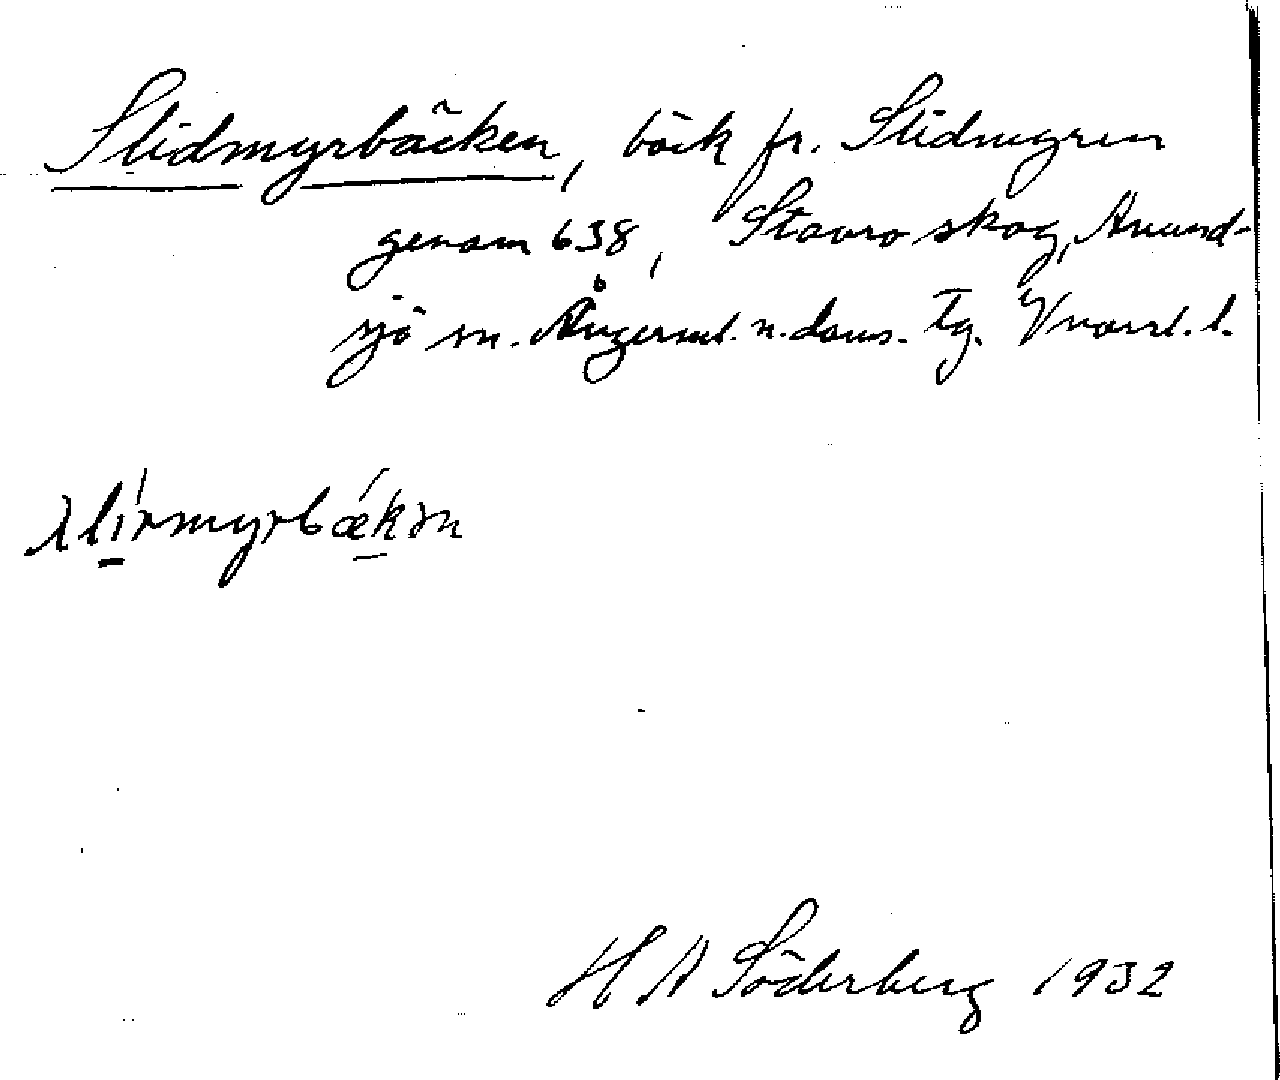 Slidmyrbäcken, bäck fr. Slidmyren
genom 638, Stavro skog, Anund-
sjö sn. Ångerml. n. doms. Tg. Vnorrl. l.
slirmyrbækɘn
H A Söderberg 1932